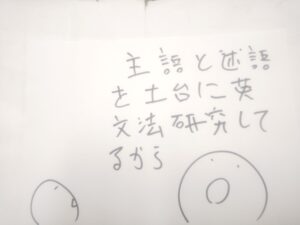 主語と述語
を土台に英
文法研究して
るから